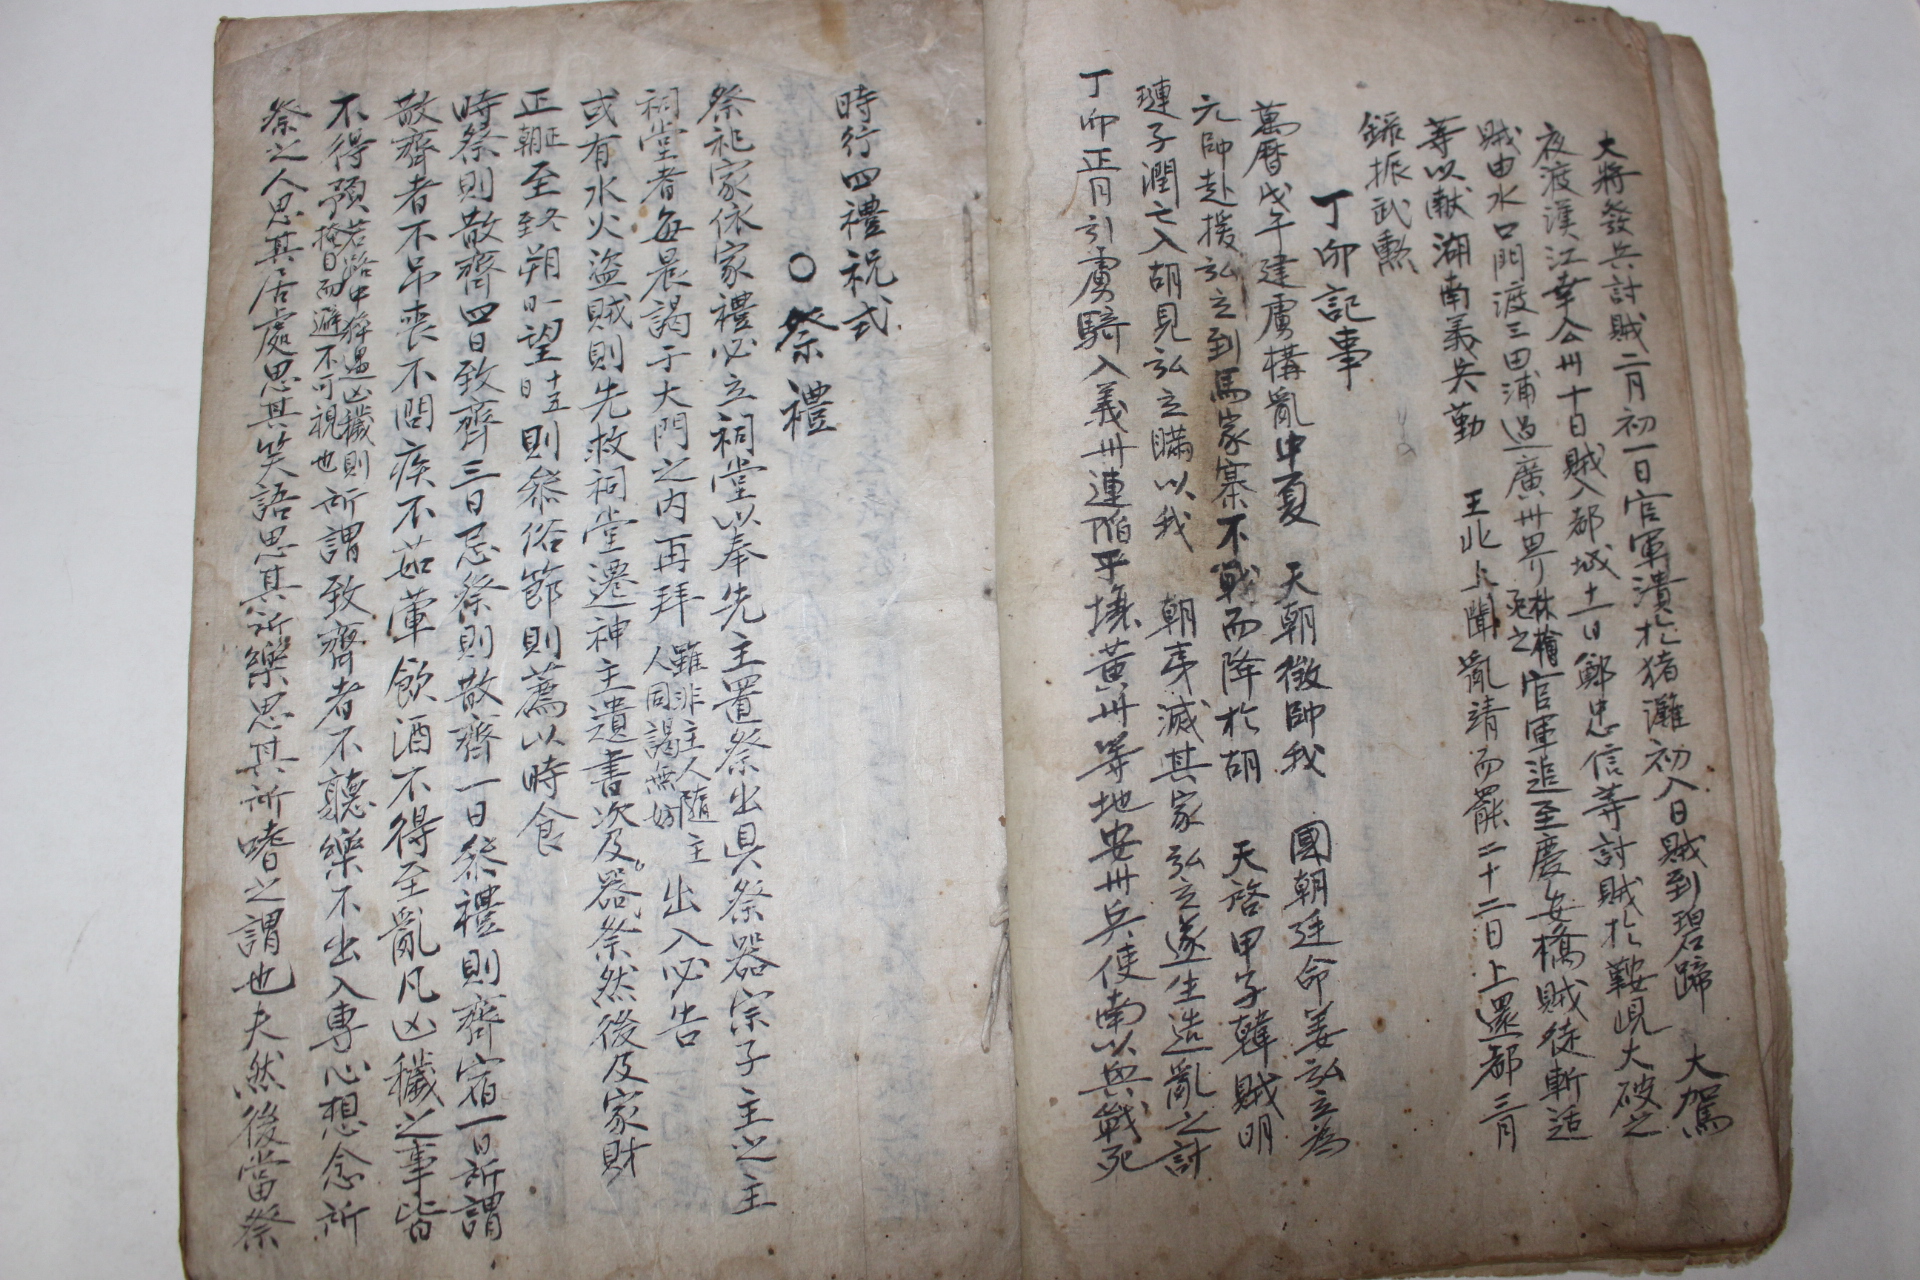 大將發兵討賊二月初一日官軍潰於猪灘初八日賊到碧蹄 大駕
夜渡漢江幸公州十日賊入都城十一日鄭忠信等討賊於鞍峴大破之
賊由水口門渡三田浦過廣州界林檜死之官軍追至慶安橋賊徒斬适
等以獻湖南義兵勤 王北上聞亂靖而罷二十二日上還都三月
錄振武勲
丁卯記事
萬曆戊午建虜構亂中夏 天朝徵帥我 國朝廷命姜弘立為
元帥赴援弘立到馬家寨不戰而降於胡 天啓甲子韓賊明
璉子潤亡入胡見弘立瞞以我 朝夷滅其家弘立遂生造亂之計
丁卯正月引虜騎入義州連陷平壤黃州等地安州兵使南以興戰死
時行四禮祝式
○祭禮
祭祀家依家禮必立祠堂以奉先主置祭出具祭器宗子主之主
祠堂者每晨謁于大門之内再拜雖非主人隨主人同謁無妨出入必告
或有水火盜賊則先救祠堂遷神主遺書次及器祭然後及家財
正朝正至冬至朔一日望十五日則叅俗節則薦以時食
時祭則散齊四日致齊三日忌祭則散齊一日叅禮則齊宿一日所謂
散齊者不吊喪不問疾不茹葷飲酒不得至亂凡凶穢之事皆
不得預若路中猝遇凶穢則掩目而避不可視也所謂致齊者不聽樂不出入專心想念所
祭之人思其居處思其笑語思其所樂思其所嗜之謂也夫然後當祭